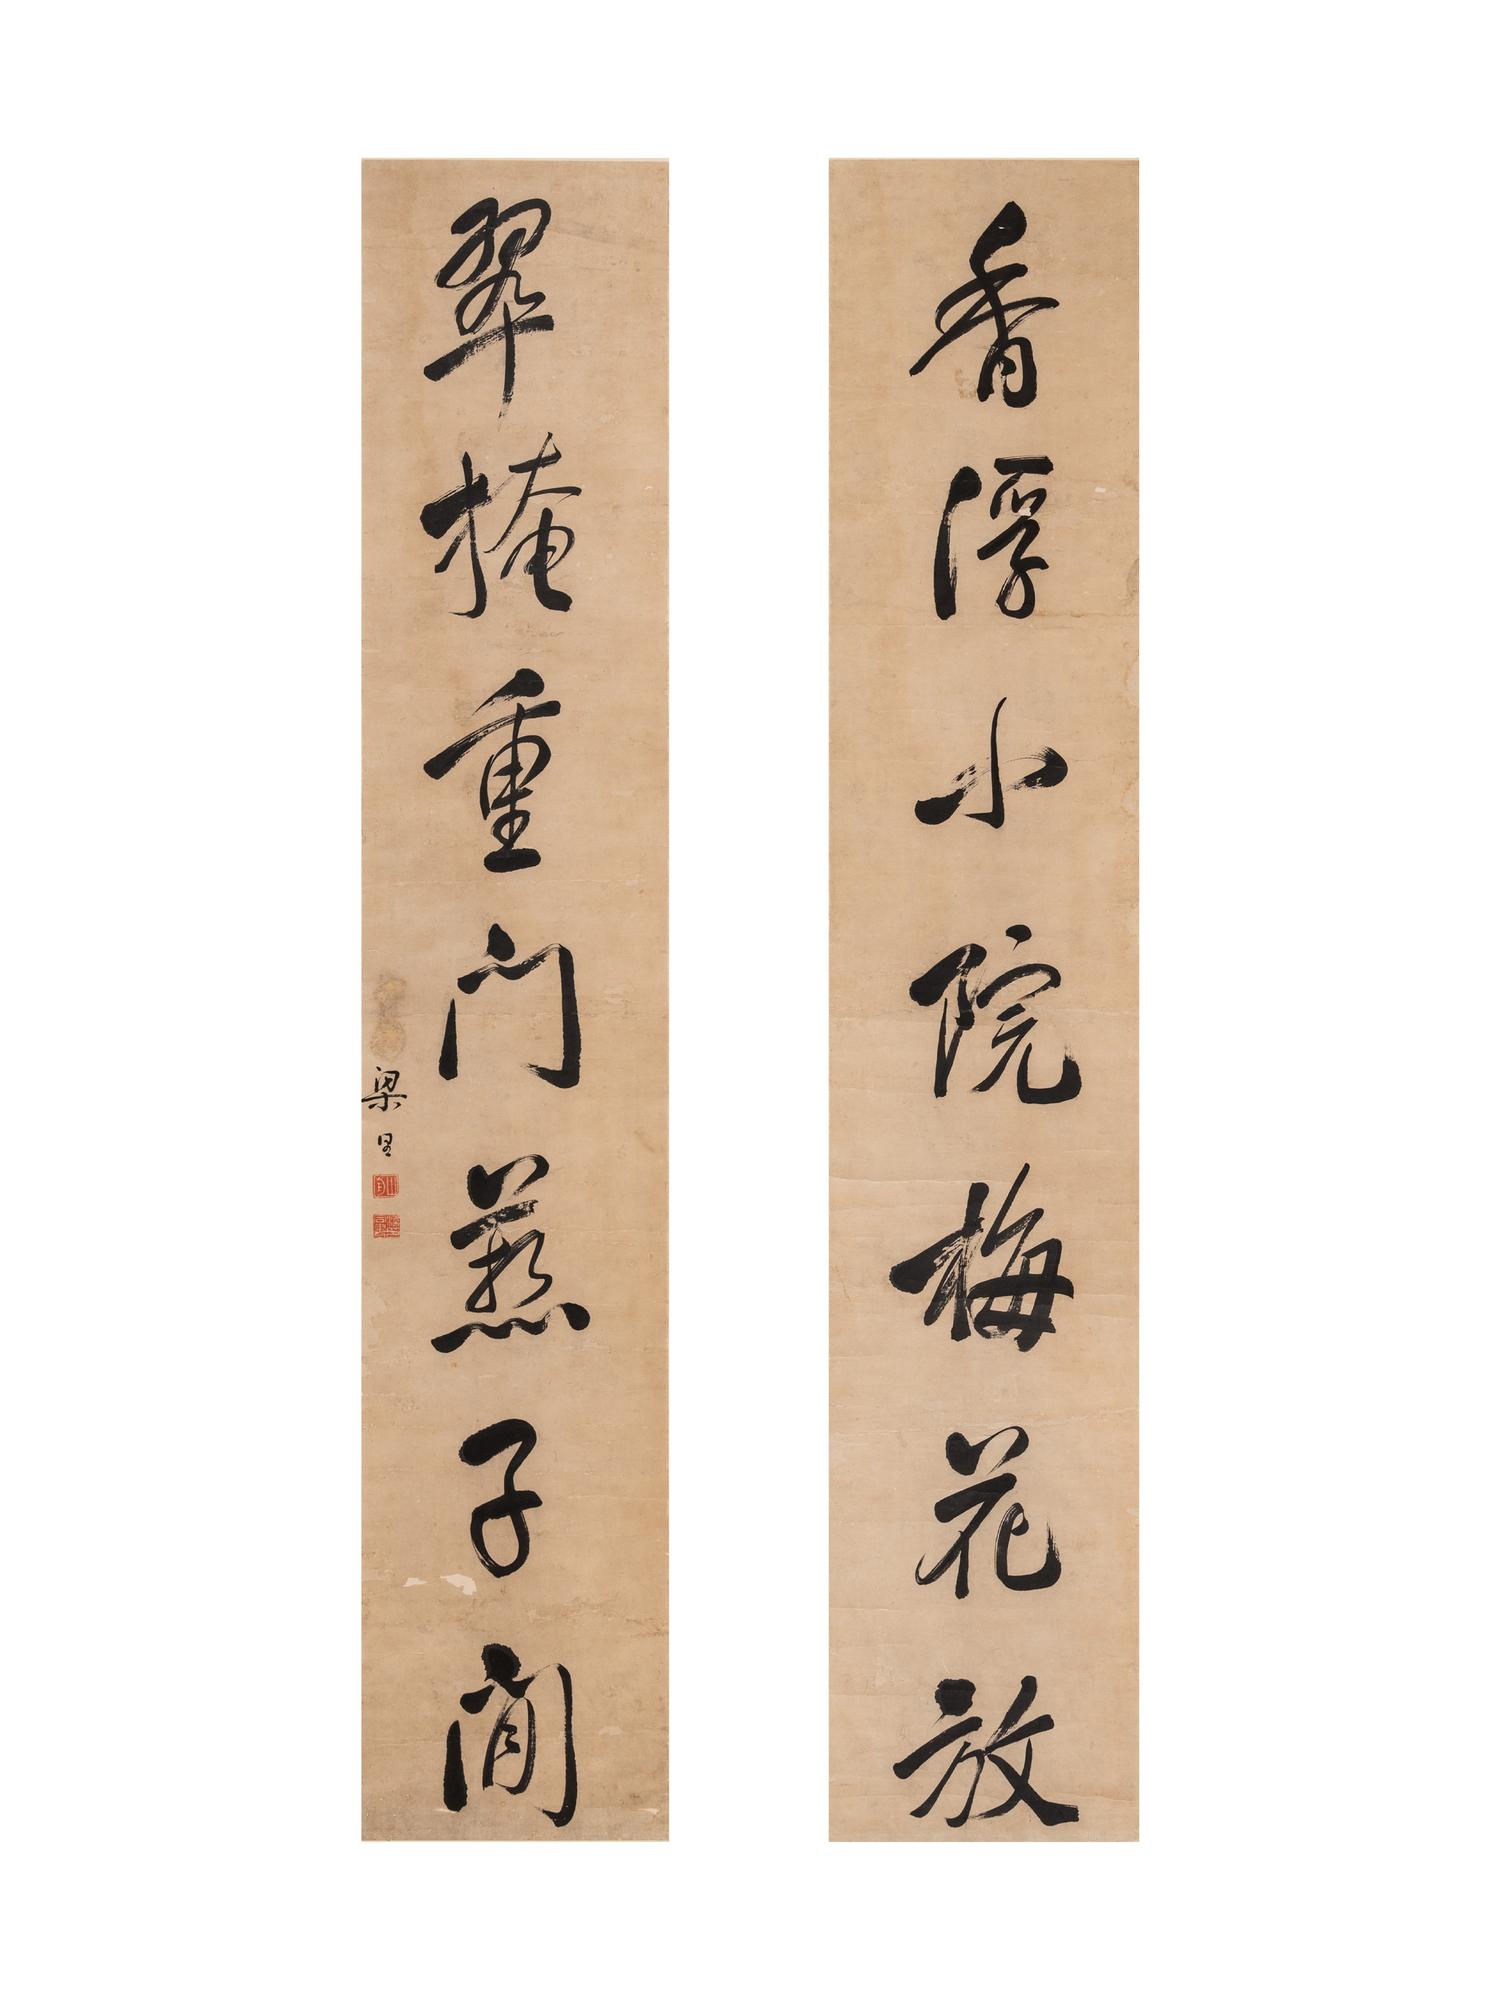 香浮小院梅花放
翠掩重門燕子閒
梁